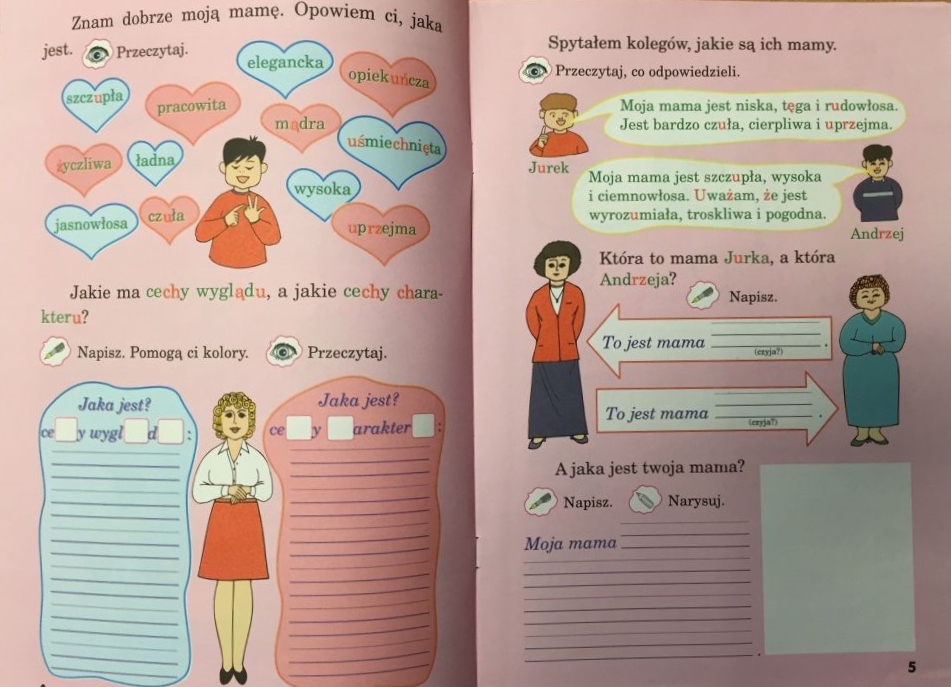 Znam dobrze moją mamę. Opowiem ci, jaka
jest. Przeczytaj.
elegancka
opiekuńcza
szczupła
pracowita
mądra
uśmiechnięta
życzliwa
ładna
wysoka
jasnowłosa
czuła
uprzejma
Jakie ma cechy wyglądu, a jakie cechy chara-
kteru?
Napisz. Pomogą ci kolory. Przeczytaj.
Jaka jest?
ce y wygl d :
Jaka jest?
ce y arakter :
Spytałem kolegów, jakie są ich mamy.
Przeczytaj, co odpowiedzieli.
Moja mama jest niska, tęga i rudowłosa.
Jest bardzo czuła, cierpliwa i uprzejma.
Jurek
Moja mama jest szczupła, wysoka
i ciemnowłosa. Uważam, że jest
wyrozumiała, troskliwa i pogodna.
Andrzej
Która to mama Jurka, a która
Andrzeja?
Napisz.
To jest mama .
(czyja?)
To jest mama .
(czyja?)
A jaka jest twoja mama?
Napisz. Narysuj.
Moja mama
.
5